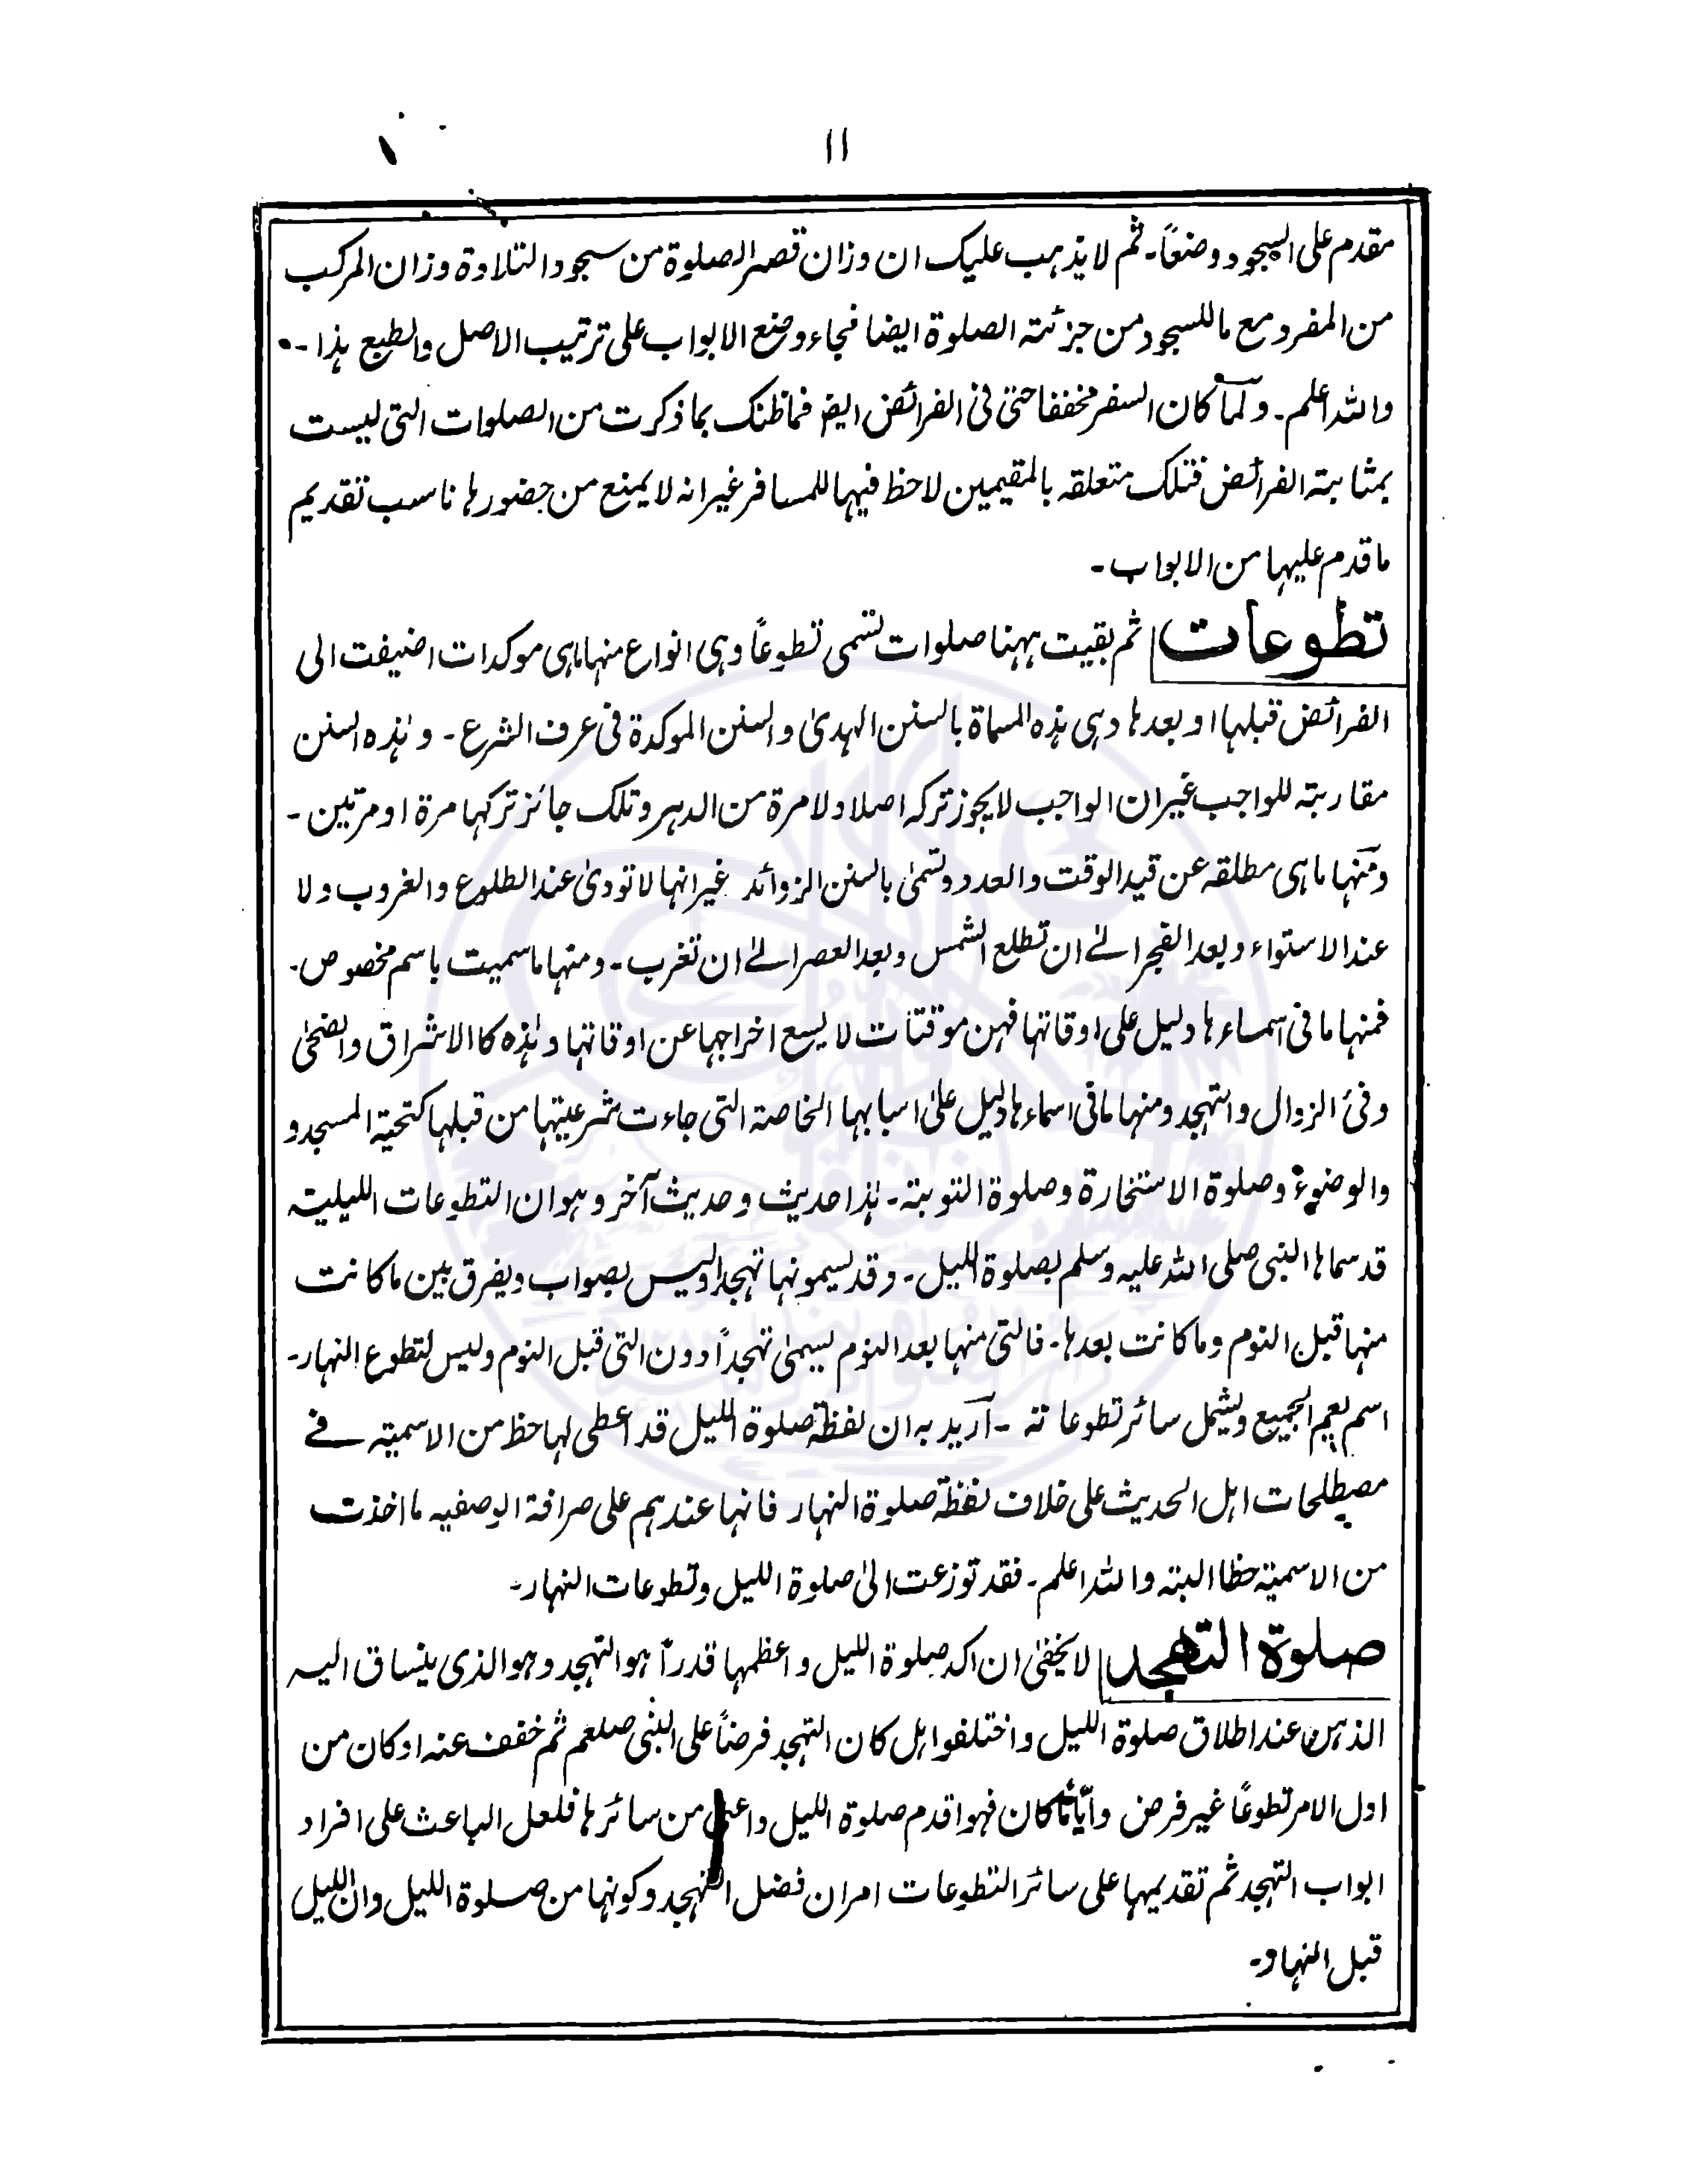 ١١
مقدم على السجود وضعاً۔ ثم لا يذهب عليك ان وزان قصر الصلوة من سجود التلاوة وزان المركب
من المفرد مع ما للسجود من جزئية الصلوة ايضا فجاء وضع الابواب على ترتيب الاصل والطبع هذا۔
والله اعلم۔ ولما كان السفر مخففا حتى فى الفرائض ايضا فما ظنك بما ذكرت من الصلوات التى ليست
بمثابة الفرائض فتلك متعلقه بالمقيمين لاحظ فيها للمسافر غير انه لا يمنع من حضورها ناسب تقديم
ما قدم عليها من الابواب۔
تطوعات ثم بقيت ههنا صلوات تسمى تطوعاً وهى انواع منها ما هى موكدات اضيفت الى
الفرائض قبلها او بعدها وهى هذه المسماة بالسنن الهدىٰ والسنن الموكدة فى عرف الشرع۔ وهٰذه السنن
مقاربة للواجب غير ان الواجب لا يجوز تركه اصلا ولا مرة من الدهر وتلك جائز تركها مرة او مرتين۔
ومنها ما هى مطلقه عن قيد الوقت والعدد وتسمىٰ بالسنن الزوائد غير انها لا تودىٰ عند الطلوع والغروب ولا
عند الاستواء وبعد الفجر الىٰ ان تطلع الشمس وبعد العصر الىٰ ان تغرب۔ ومنها ما سميت باسم مخصوص۔
فمنها ما فى اسماءها دليل على اوقاتها فهن موقتات لا يسع اخراجها عن اوقاتها وهٰذه كالاشراق والضحىٰ
وفئ الزوال والتهجد ومنها ما فى اسماءها دليل علىٰ اسبابها الخاصة التى جاءت شرعيتها من قبلها كتحية المسجد و
والوضوء وصلوة الاستخارة وصلوة التوبة۔ هٰذا حديث وحديث آخر وهو ان التطوعات الليلية
قد سماها النبى صلى الله عليه وسلم بصلوة الليل۔ وقد يسمونها تهجدا وليس بصواب ويفرق بين ما كانت
منها قبل النوم وما كانت بعدها۔ فالتى منها بعد النوم يسمىٰ تهجداً دون التى قبل النوم وليس لتطوع النهار۔
اسم يعم الجميع ويشمل سائر تطوعاته ۔ اريد به ان لفظة صلوة الليل قد اعطى لها حظ من الاسمية فے
مصطلحات اهل الحديث على خلاف لفظة صلوة النهار فانها عندهم على صرافة الوصفيه ما اخذت
من الاسمية حظا البته والله اعلم۔ فقد توزعت الىٰ صلوة الليل وتطوعات النهار۔
صلوة التهجد لا يخفىٰ ان اكد صلوة الليل واعظمها قدراً هو التهجد وهو الذى ينساق اليه
الذهن عند اطلاق صلوة الليل واختلفوا هل كان التهجد فرضاً على النبى صلعم ثم خفف عنه او كان من
اول الامر تطوعاً غير فرض وايّاً ما كان فهو اقدم صلوة الليل من سائرها فلعل الباعث على افراد
ابواب التهجد ثم تقديمها على سائر التطوعات امران فضل التهجد وكونها من صلوة الليل وان الليل
قبل النهار۔